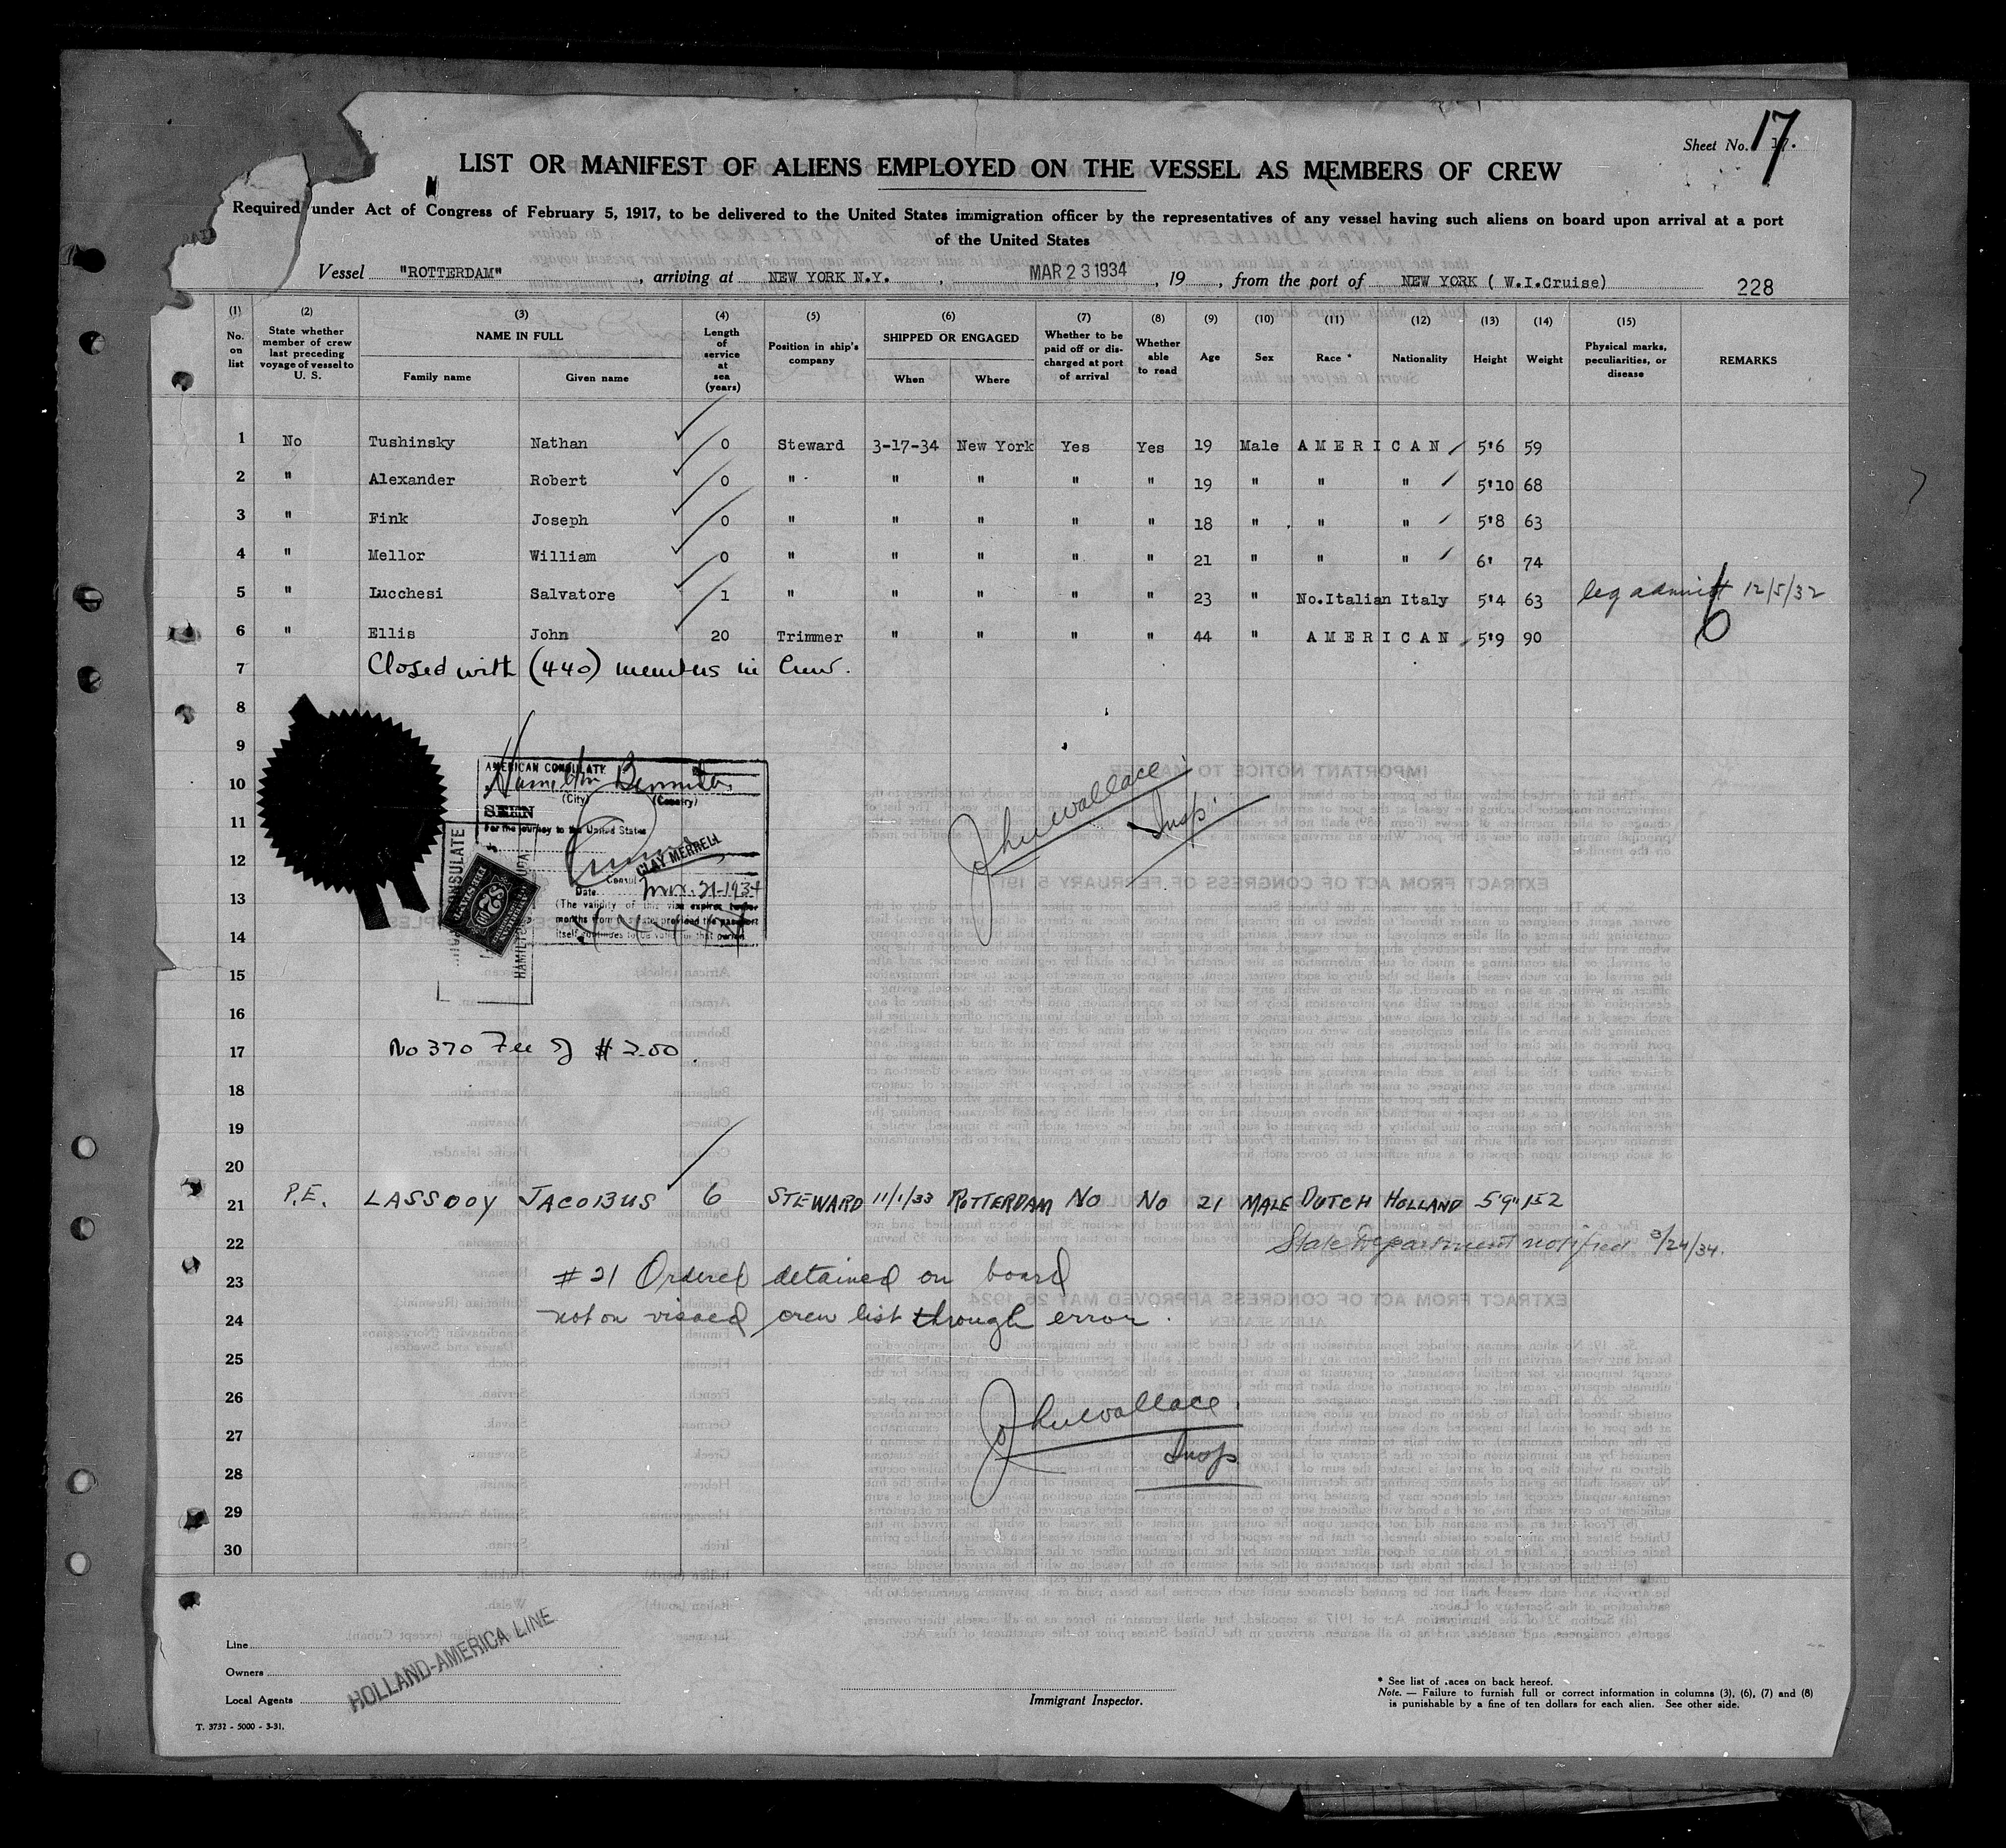 Sheet No. 17.
17
LIST OR MANIFEST OF ALIENS EMPLOYED ON THE VESSEL AS MEMBERS OF CREW
Required under Act of Congress of February 5, 1917, to be delivered to the United States immigration officer by the representatives of any vessel having such aliens on board upon arrival at a port
of the United States
Vessel "ROTTERDAM", arriving at NEW YORK N.Y., MAR 23 1934, 19, from the port of NEW YORK ( W.I.Cruise) 228
(1) No. on list
(2) State whether member of crew last preceding voyage of vessel to U. S.
(3) NAME IN FULL
Family name Given name
(4) Length of service at sea (years)
(5) Position in ship's company
(6) SHIPPED OR ENGAGED
When Where
(7) Whether to be paid off or discharged at port of arrival
(8) Whether able to read
(9) Age
(10) Sex
(11) Race *
(12) Nationality
(13) Height
(14) Weight
(15) Physical marks, peculiarities, or disease
REMARKS
1 No Tushinsky Nathan 0 Steward 3-17-34 New York Yes Yes 19 Male AMERICAN 5'6 59
2 " Alexander Robert 0 " " " " " 19 " " " 5'10 68
3 " Fink Joseph 0 " " " " " 18 " " " 5'8 63
4 " Mellor William 0 " " " " " 21 " " " 6' 74
5 " Lucchesi Salvatore 1 " " " " " 23 " No.Italian Italy 5'4 63 leg admitt 12/5/32
6 " Ellis John 20 Trimmer " " " " 44 " AMERICAN 5'9 90
6
7 Closed with (440) members in Crew.
8
9
10
11
12
13
14
15
16
17 No 370 Fee of $ 2.00.
18
19
20
AMERICAN CONSULATE
Hamilton Bermuda
(City) (Country)
SEEN
For the journey to the United States
CLAY MERRELL
Consul
Date Mar. 21-1934
(The validity of this visa expires twelve
months from this date provided the passport
itself continues to be valid for that period
John Wallace
Insp.
21 P.E. LASSOOY JACOBUS 6 STEWARD 11/1/33 ROTTERDAM NO NO 21 MALE DUTCH HOLLAND 5'9" 152
22 State Department notified 3/24/34.
23 # 21 Ordered detained on board
24 not on visaed crew list through error.
25
26 John Wallace
27 Insp
28
29
30
Line
Owners
Local Agents
HOLLAND-AMERICA LINE
T. 3732 - 5000 - 3-31.
Immigrant Inspector.
* See list of races on back hereof.
Note. — Failure to furnish full or correct information in columns (3), (6), (7) and (8)
is punishable by a fine of ten dollars for each alien. See other side.